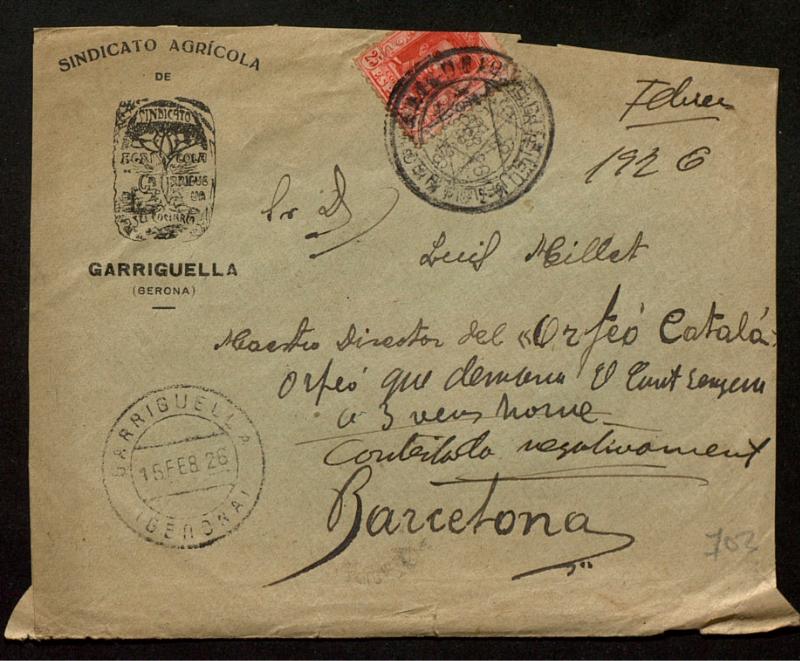 SINDICATO AGRÍCOLA
DE
SINDICATO
AGRI COLA
GARRIGUELLA
(GERONA)
25
Febrer
1926
Sr D
Luis Millet
Maestro Director del «Orfeó Catalá
Orfeó que demana El Cant Senyera
a 3 veus home
Contestada negativament
Barcelona
GARRIGUELLA
16 FEB 26
(GERONA)
703